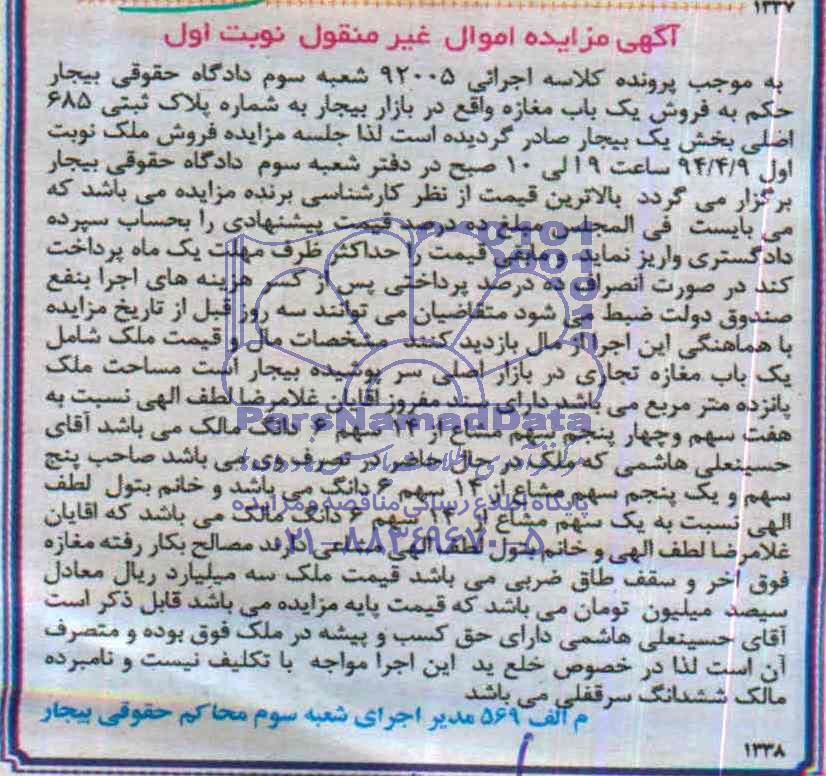 ۱۳۳۷
آگهی مزایده اموال غیر منقول نوبت اول
به موجب پرونده کلاسه اجرائی ۹۲۰۰۵ شعبه سوم دادگاه حقوقی بیجار
حکم به فروش یک باب مغازه واقع در بازار بیجار به شماره پلاک ثبتی ۶۸۵
اصلی بخش یک بیجار صادر گردیده است لذا جلسه مزایده فروش ملک نوبت
اول ۹۴/۴/۹ ساعت ۹ الی ۱۰ صبح در دفتر شعبه سوم دادگاه حقوقی بیجار
برگزار می گردد بالاترین قیمت از نظر کارشناسی برنده مزایده می باشد که
می بایست فی المجلس مبلغ ده درصد قیمت پیشنهادی را بحساب سپرده
دادگستری واریز نماید و مابقی قیمت را حداکثر ظرف مهلت یک ماه پرداخت
کند در صورت انصراف ده درصد پرداختی پس از کسر هزینه های اجرا بنفع
صندوق دولت ضبط می شود متقاضیان می توانند سه روز قبل از تاریخ مزایده
با هماهنگی این اجرا از مال بازدید کنند مشخصات مال و قیمت ملک شامل
یک باب مغازه تجاری در بازار اصلی سر پوشیده بیجار است مساحت ملک
پانزده متر مربع می باشد دارای سند مفروز اقایان غلامرضا لطف الهی نسبت به
هفت سهم وچهار پنجم سهم مشاع از ۱۴ سهم ۶ دانگ مالک می باشد آقای
حسینعلی هاشمی که ملک در حال حاضر در تصرف وی می باشد صاحب پنج
سهم و یک پنجم سهم مشاع از ۱۴ سهم ۶ دانگ می باشد و خانم بتول لطف
الهی نسبت به یک سهم مشاع از ۱۴ سهم ۶ دانگ مالک می باشد که اقایان
غلامرضا لطف الهی و خانم بتول لطف الهی متناعی دارند مصالح بکار رفته مغازه
فوق اخر و سقف طاق ضربی می باشد قیمت ملک سه میلیارد ریال معادل
سیصد میلیون تومان می باشد که قیمت پایه مزایده می باشد قابل ذکر است
آقای حسینعلی هاشمی دارای حق کسب و پیشه در ملک فوق بوده و متصرف
آن است لذا در خصوص خلع ید این اجرا مواجه با تکلیف نیست و نامبرده
مالک ششدانگ سرقفلی می باشد
م الف ۵۶۹ مدیر اجرای شعبه سوم محاکم حقوقی بیجار
۱۳۳۸
ParsNamadData
پایگاه اطلاع رسانی مناقصه و مزایده
۰۲۱-۸۸۳۴۹۶۷۰-۵